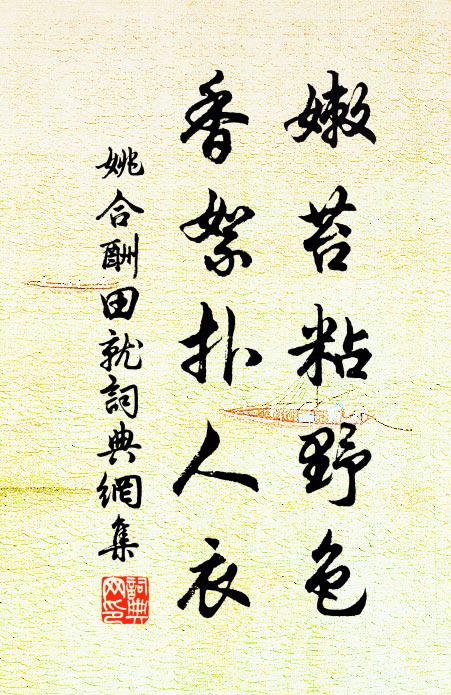 嫩苔粘野色
香絮扑人衣
姚合酬田就詞典網集
詞典網印